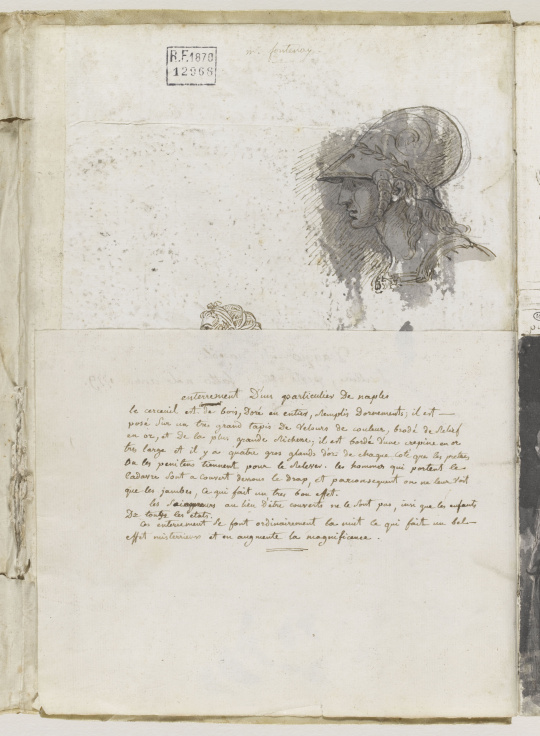 R.F.1870
12966
enterrement D'un particulier De naples
le cerceuil est de bois, Doré en entier, Remplis Dornements; il est —
posé Sur un tres grand tapis De Velours de couleur, brodé de Relief
en or, et de la plus grande Richesse; il est bordé D'une crepine en or
tres large et il y a quatre gros glands d'or de chaque coté que les
ou les penitens tiennent pour le Relever. les hommes qui portent le
Cadavre Sont a couvert dessous le drap, et parconsequent on ne leur Voit
que les jambes, ce qui fait un tres bon effet.
les Seigneurs au lieu d'être couverts ne le Sont pas, insi que les enfants
De toutte les états.
ces enterrement Se font ordinairement la nuit ce qui fait un bel
effet misterieux et en augmente la magnificence.